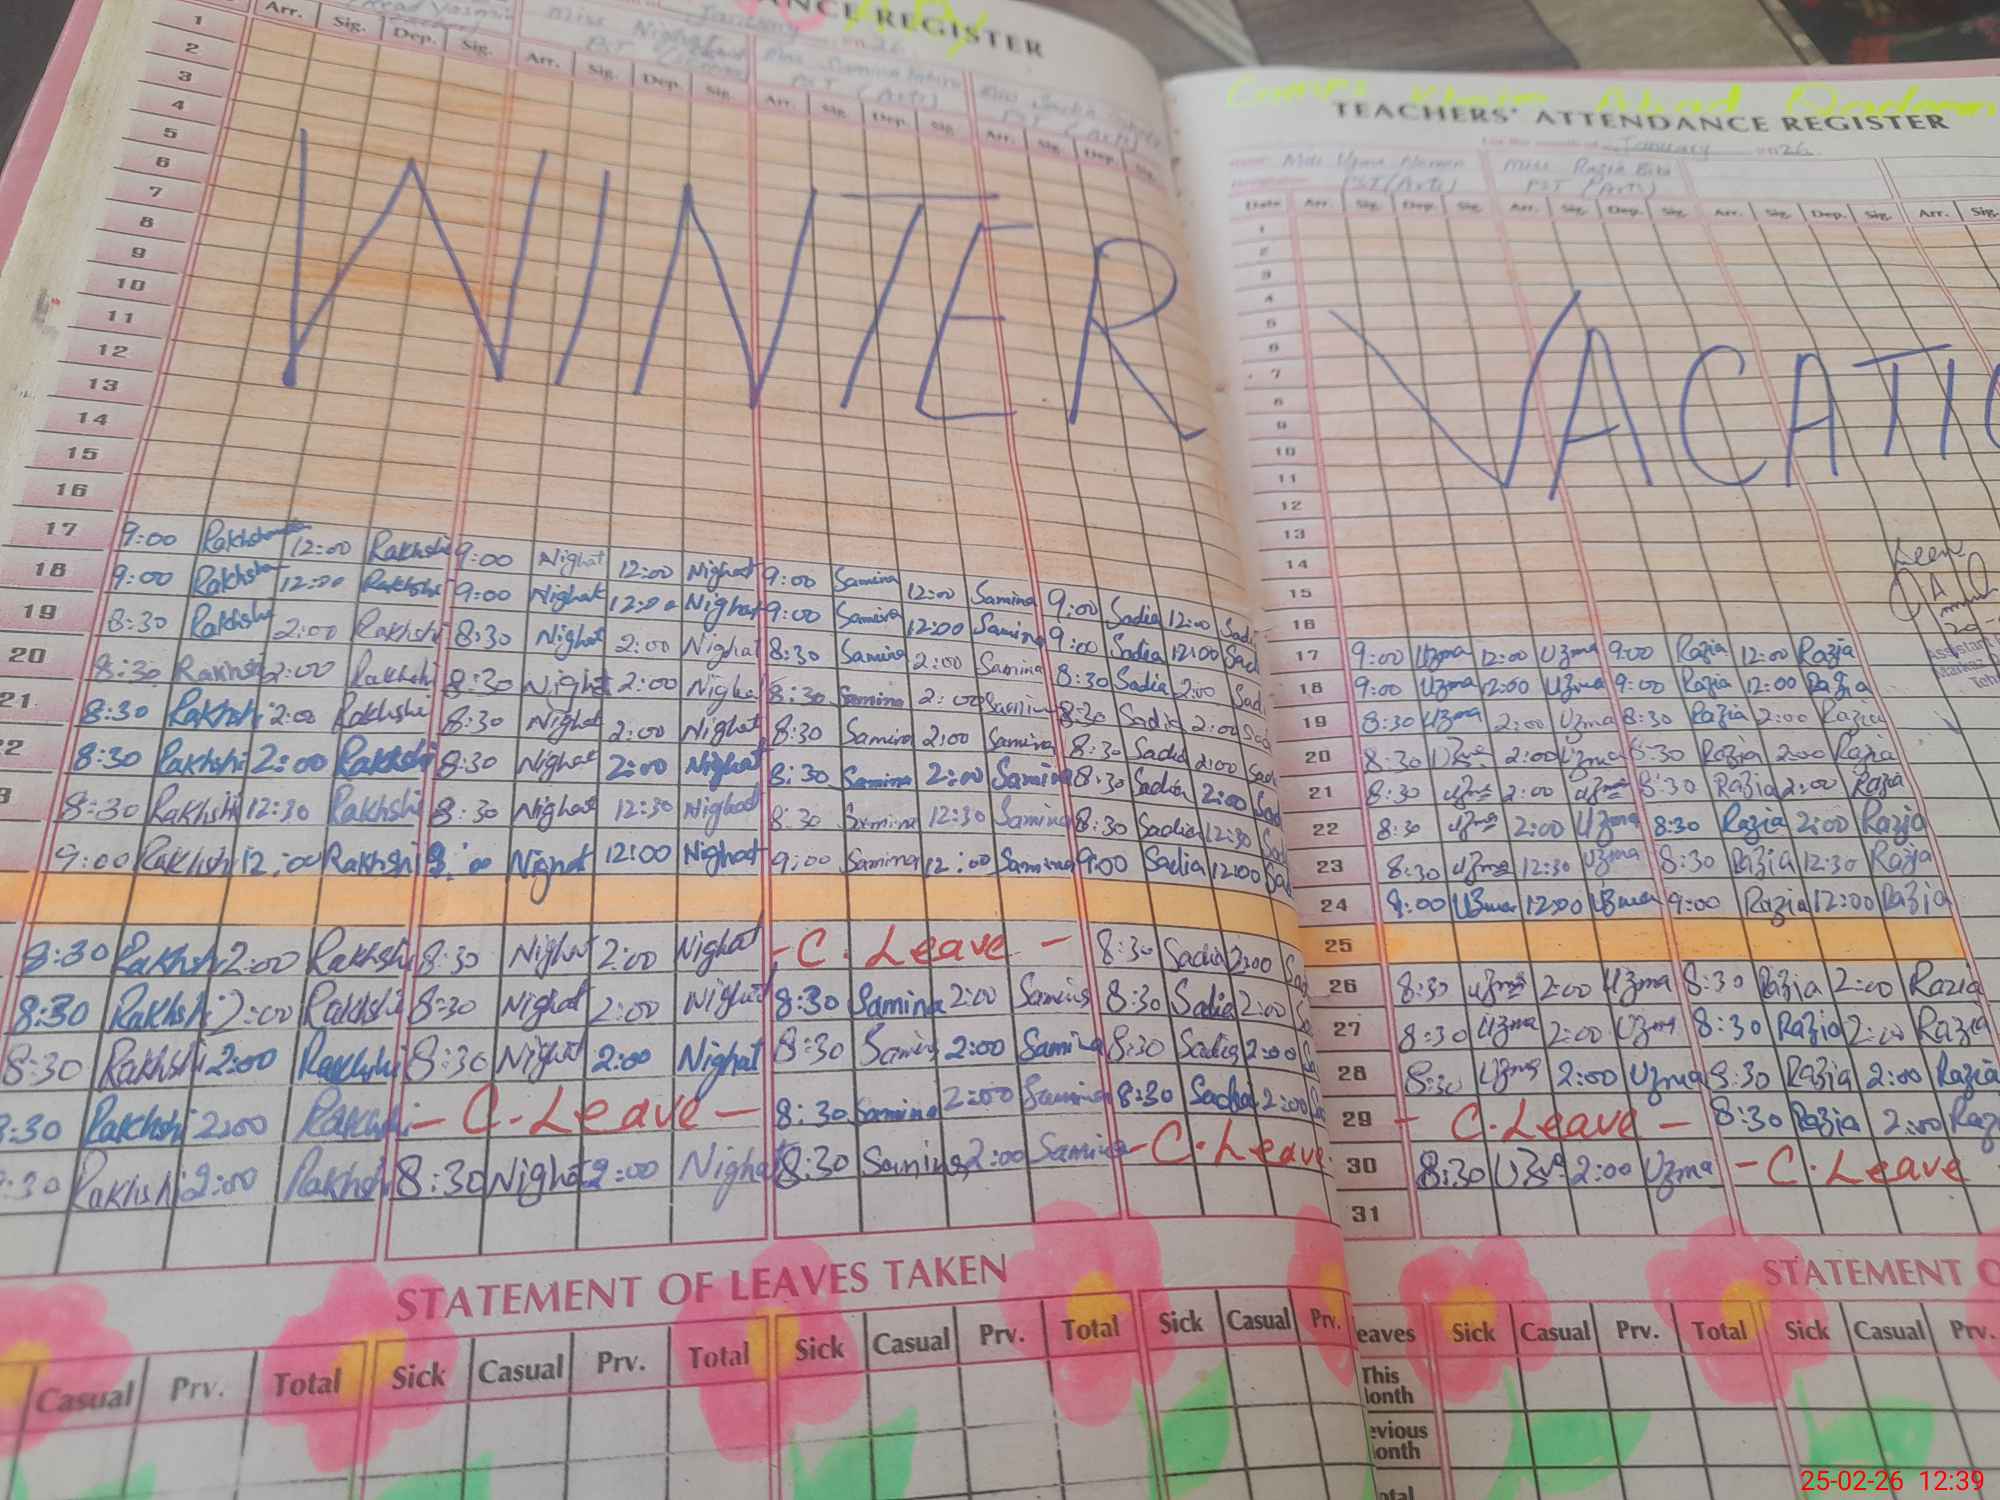 NCE REGISTER
January 26
Miss Nighat
PST (Science)
PST (Arts)
PST (Arts)
Arr. Sig. Dep. Sig. Arr. Sig. Dep. Sig. Arr. Sig. Dep. Sig. Arr. Sig. Dep. Sig.
1
2
3
4
5
6
7
8
9
10
11
12
13
14
15
16
WINTER
17 9:00 Rakhshi 12:00 Rakhshi 9:00 Nighat 12:00 Nighat 9:00 Samina 12:00 Samina 9:00 Sadia 12:00 Sadi
18 9:00 Rakhshi 12:00 Rakhshi 9:00 Nighat 12:00 Nighat 9:00 Samina 12:00 Samina 9:00 Sadia 12:00 Sad
19 8:30 Rakhshi 2:00 Rakhshi 8:30 Nighat 2:00 Nighat 8:30 Samina 2:00 Samina 8:30 Sadia 2:00 Sad
20 8:30 Rakhshi 2:00 Rakhshi 8:30 Nighat 2:00 Nighat 8:30 Samina 2:00 Samina 8:30 Sadia 2:00 Sad
21 8:30 Rakhshi 2:00 Rakhshi 8:30 Nighat 2:00 Nighat 8:30 Samina 2:00 Samina 8:30 Sadia 2:00 Sad
2 8:30 Rakhshi 2:00 Rakhshi 8:30 Nighat 2:00 Nighat 8:30 Samina 2:00 Samina 8:30 Sadia 2:00 Sad
3 8:30 Rakhshi 12:30 Rakhshi 8:30 Nighat 12:30 Nighat 8:30 Samina 12:30 Samina 8:30 Sadia 12:30 Sad
9:00 Rakhshi 12:00 Rakhshi 9:00 Nighat 12:00 Nighat 9:00 Samina 12:00 Samina 9:00 Sadia 12:00 Sad
8:30 Rakhshi 2:00 Rakhshi 8:30 Nighat 2:00 Nighat - C. Leave - 8:30 Sadia 2:00 Sad
8:30 Rakhshi 2:00 Rakhshi 8:30 Nighat 2:00 Nighat 8:30 Samina 2:00 Samina 8:30 Sadia 2:00 Sa
8:30 Rakhshi 2:00 Rakhshi 8:30 Nighat 2:00 Nighat 8:30 Samina 2:00 Samina 8:30 Sadia 2:00 Sa
8:30 Rakhshi 2:00 Rakhshi - C. Leave - 8:30 Samina 2:00 Samina 8:30 Sadia 2:00 Sa
:30 Rakhshi 2:00 Rakhshi 8:30 Nighat 2:00 Nighat 8:30 Samina 2:00 Samina - C. Leave
STATEMENT OF LEAVES TAKEN
Casual Prv. Total Sick Casual Prv. Total Sick Casual Prv. Total Sick Casual Prv.
TEACHERS' ATTENDANCE REGISTER
January 26
Miss Uzma PST (Arts)
Miss Razia Bibi PST (Arts)
Date Arr. Sig. Dep. Sig. Arr. Sig. Dep. Sig. Arr. Sig. Dep. Sig. Arr. Sig.
1
2
3
4
5
6
7
8
9
10
11
12
13
14
15
16
VACATIO
Seen
Assistant
Markaz
Teh
17 9:00 Uzma 12:00 Uzma 9:00 Razia 12:00 Razia
18 9:00 Uzma 12:00 Uzma 9:00 Razia 12:00 Razia
19 8:30 Uzma 2:00 Uzma 8:30 Razia 2:00 Razia
20 8:30 Uzma 2:00 Uzma 8:30 Razia 2:00 Razia
21 8:30 Uzma 2:00 Uzma 8:30 Razia 2:00 Razia
22 8:30 Uzma 2:00 Uzma 8:30 Razia 2:00 Razia
23 8:30 Uzma 12:30 Uzma 8:30 Razia 12:30 Razia
24 9:00 Uzma 12:00 Uzma 9:00 Razia 12:00 Razia
25
26 8:30 Uzma 2:00 Uzma 8:30 Razia 2:00 Razia
27 8:30 Uzma 2:00 Uzma 8:30 Razia 2:00 Razia
28 8:30 Uzma 2:00 Uzma 8:30 Razia 2:00 Razia
29 - C. Leave - 8:30 Razia 2:00 Raz
30 8:30 Uzma 2:00 Uzma - C. Leave
31
STATEMENT O
eaves Sick Casual Prv. Total Sick Casual Prv.
This
onth
evious
onth
otal
25-02-26 12:39